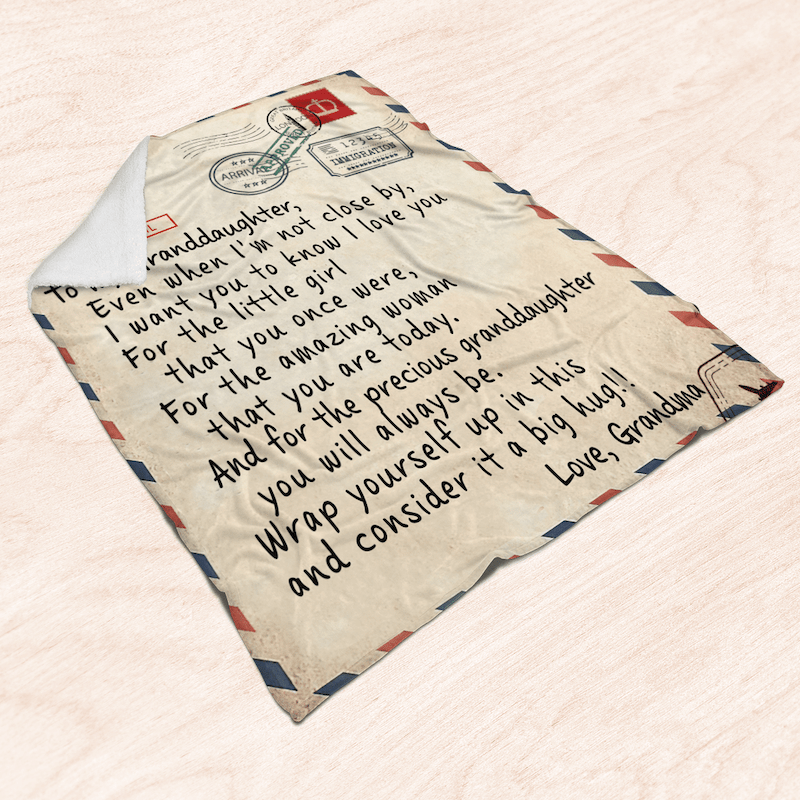 LONDON
APPROVED
ARRIVAL
12345
IMMIGRATION
To granddaughter,
Even when I'm not close by,
I want you to know I love you
For the little girl
that you once were,
For the amazing woman
that you are today.
And for the precious granddaughter
you will always be.
Wrap yourself up in this
and consider it a big hug!!
Love, Grandma